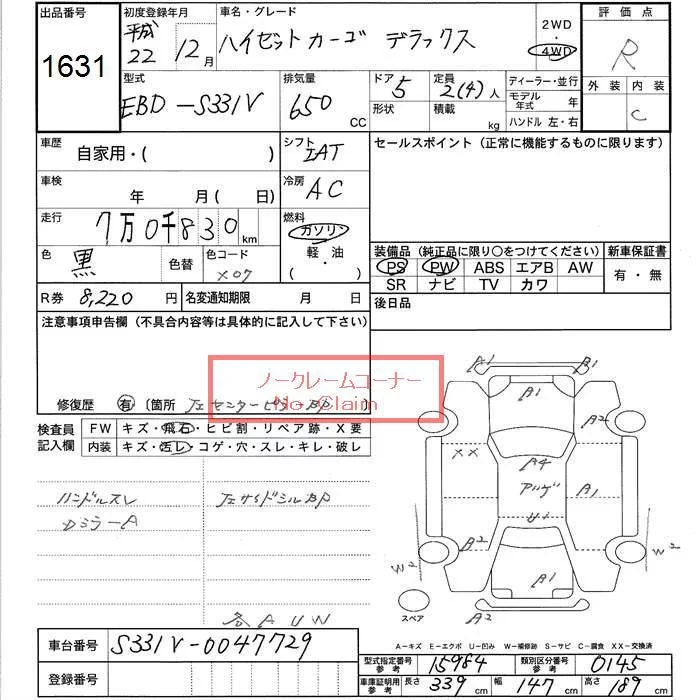 出品番号 1631
初度登録年月 平成22 12月
車名・グレード ハイゼットカーゴ デラックス
2WD 4WD
評価点 R
外装 内装 C
型式 EBD-S331V
排気量 650 CC
ドア 5 形状
定員 2(4)人 積載 kg
ディーラー・並行
モデル年式 年
ハンドル 左・右
車歴 自家用・( )
シフト IAT
セールスポイント(正常に機能するものに限ります)
車検 年 月( 日)
冷房 AC
走行 7万0千830km
燃料 ガソリン 軽・油 ( ・ )
色 黒 色替 色コード X07
装備品(純正品に限り〇をつけてください) 新車保証書
PS PW ABS エアB AW 有・無
SR ナビ TV カワ
R券 8,220円 名変通知期限 月 日
後日品
注意事項申告欄(不具合内容等は具体的に記入して下さい)
ノークレームコーナー
No Claim
修復歴 有 〔箇所
検査員記入欄 FW キズ・飛石・ヒビ割・リペア跡・X要
内装 キズ・汚レ・コゲ・穴・スレ・キレ・破レ
ハンドルスレ
Dミラー A
A1 B1
A1
A2
XX A4
A1
A2 B2
W2 W2
A1
A2
スペア
各AUW
A-キズ E-エクボ U-凹み W-補修跡 S-サビ C-腐食 XX-交換済
車台番号 S331V-0047729
登録番号
型式指定番号 参考 15984 類別区分番号 参考 0145
車庫証明用 参考 長さ 339cm 幅 147cm 高さ 189cm